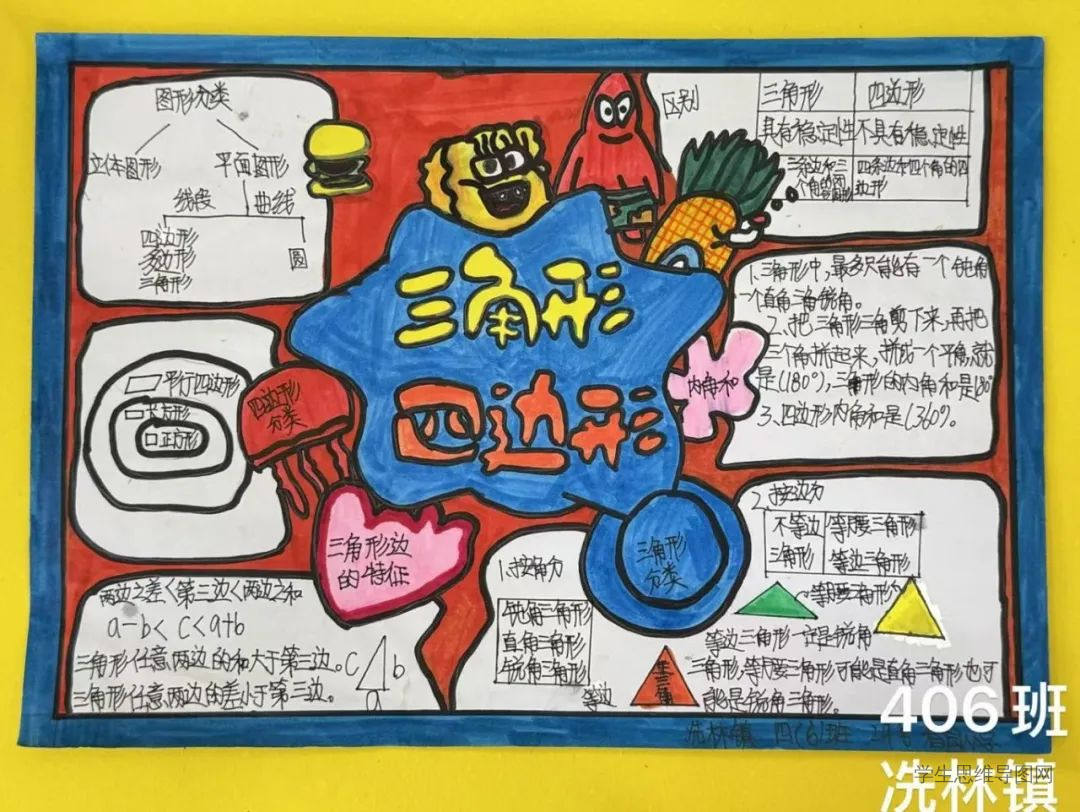 三角形
四边形
图形分类
立体图形 平面图形
线段 曲线
四边形
多边形
三角形
圆
区别
三角形 四边形
具有稳定性 不具有稳定性
四条边和四个角的四
边形
平行四边形
长方形
正方形
四边形
分类
1.三角形中,最多只能有一个钝角
一个直角三角锐角。
2、把三角形三角剪下来,再把
三个角拼起来,拼成一个平角,就
是(180°),三角形的内角和是180°
3、四边形内角和是(360°。
内角和
三角形边
的特征
两边之差<第三边<两边之和
a-b< c<a+b
三角形任意两边的和大于第三边。
三角形任意两边的差小于第三边。
c b
a
三角形
分类
1.按角分
钝角三角形
直角三角形
锐角三角形
2.按边分
不等边 等腰三角形
三角形 等边三角形
等腰三角形
等边三角形一定是锐角
三角形,等腰三角形可能是直角三角形也可
能是锐角三角形。
等边
冼林镇 四(6)班
406班
冼林镇
学生思维导图网